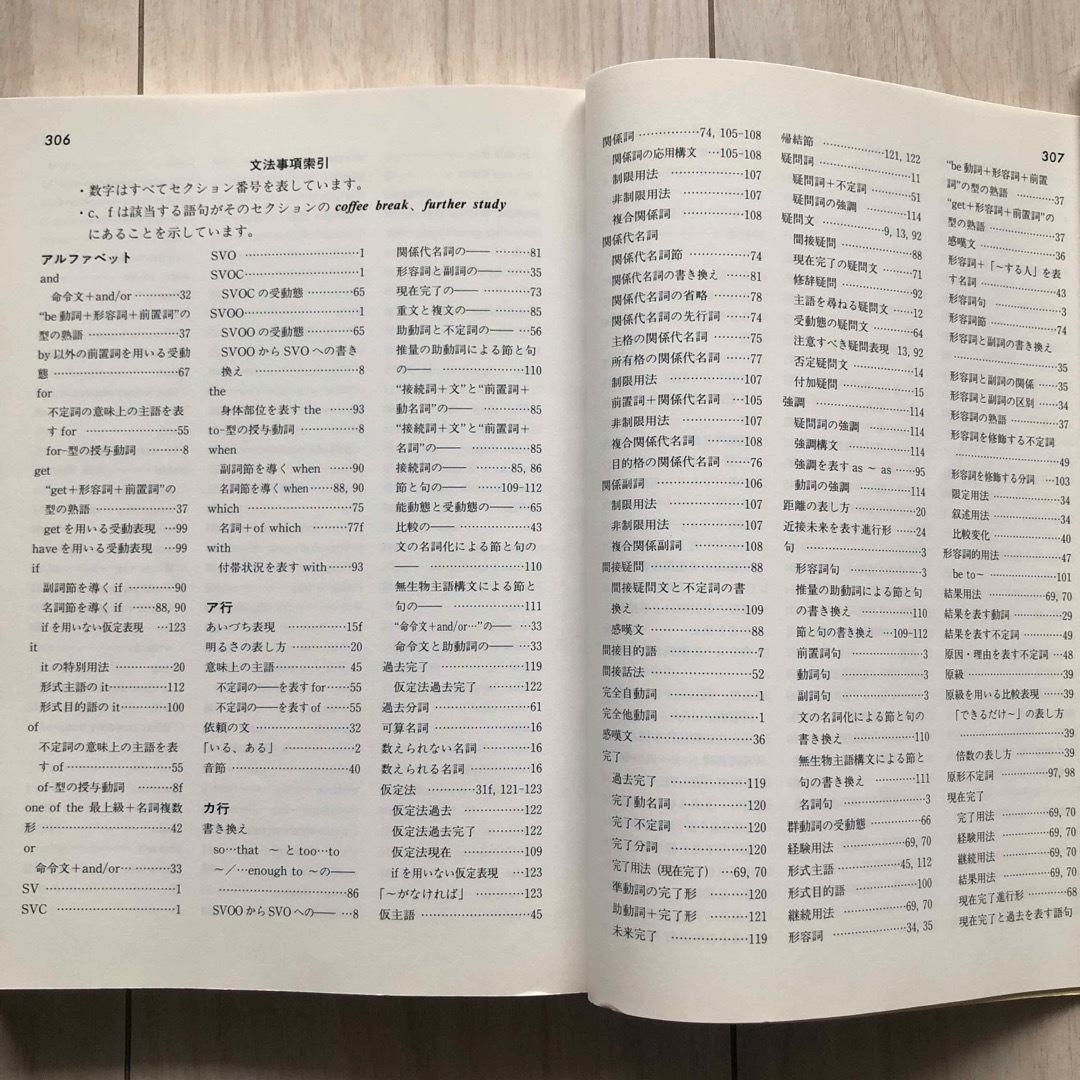 306
文法事項索引
・数字はすべてセクション番号を表しています。
・c、fは該当する語句がそのセクションの coffee break、further study
にあることを示しています。
アルファベット
and
命令文+and/or …………32
“be動詞+形容詞+前置詞”の
型の熟語 ……………………37
by以外の前置詞を用いる受動
態 ……………………………67
for
不定詞の意味上の主語を表
すfor ……………………55
for-型の授与動詞 ………8
get
“get+形容詞+前置詞”の
型の熟語 …………………37
getを用いる受動表現 …99
haveを用いる受動表現 …99
if
副詞節を導くif …………90
名詞節を導くif ……88, 90
ifを用いない仮定表現 …123
it
itの特別用法 ……………20
形式主語のit……………112
形式目的語のit…………100
of
不定詞の意味上の主語を表
すof ………………………55
of-型の授与動詞 ………8f
one of the 最上級+名詞複数
形 ……………………………42
or
命令文+and/or …………33
SV ……………………………1
SVC……………………………1
SVO ……………………………1
SVOC……………………………1
SVOCの受動態 …………65
SVOO……………………………1
SVOOの受動態 …………65
SVOOからSVOへの書き
換え ………………………8
the
身体部位を表すthe ……93
to-型の授与動詞 …………8
when
副詞節を導くwhen ……90
名詞節を導くwhen……88, 90
which …………………………75
名詞+of which ………77f
with
付帯状況を表すwith……93
ア行
あいづち表現 ……………15f
明るさの表し方 ……………20
意味上の主語………………45
不定詞の——を表すfor……55
不定詞の——を表すof ……55
依頼の文 ……………………32
「いる、ある」 ………………2
音節 …………………………40
カ行
書き換え
so…that ~ とtoo…to
~／…enough to ~の——
……………………………86
SVOOからSVOへの—— …8
関係代名詞の—— ………81
形容詞と副詞の—— ……35
現在完了の—— …………73
重文と複文の—— ………85
助動詞と不定詞の—— …56
推量の助動詞による節と句
の—— ……………………110
“接続詞+文”と“前置詞+
動名詞”の—— …………85
“接続詞+文”と“前置詞+
名詞”の—— ……………85
接続詞の—— ………85, 86
節と句の—— ……109-112
能動態と受動態の—— …65
比較の—— ………………43
文の名詞化による節と句の
—— ………………………110
無生物主語構文による節と
句の—— …………………111
“命令文+and/or…”の—— …33
命令文と助動詞の—— …33
過去完了 …………………119
仮定法過去完了 ………122
過去分詞 ……………………61
可算名詞 ……………………16
数えられない名詞 …………16
数えられる名詞 ……………16
仮定法 …………31f, 121-123
仮定法過去 ……………122
仮定法過去完了 ………122
仮定法現在 ……………109
ifを用いない仮定表現 …123
「～がなければ」 …………123
仮主語 ………………………45
307
関係詞 ……………74, 105-108
関係詞の応用構文 …105-108
制限用法 ………………107
非制限用法 ……………107
複合関係詞 ……………108
関係代名詞
関係代名詞節 ……………74
関係代名詞の書き換え …81
関係代名詞の省略 ………78
関係代名詞の先行詞 ……74
主格の関係代名詞 ………75
所有格の関係代名詞 ……77
制限用法 ………………107
前置詞+関係代名詞 …105
非制限用法 ……………107
複合関係代名詞 ………108
目的格の関係代名詞 ……76
関係副詞 …………………106
制限用法 ………………107
非制限用法 ……………107
複合関係副詞 …………108
間接疑問 ……………………88
間接疑問文と不定詞の書
換え ……………………109
感嘆文 ……………………88
間接目的語 …………………7
間接話法 ……………………52
完全自動詞 …………………1
完全他動詞 …………………1
感嘆文 ………………………36
完了
過去完了 ………………119
完了動名詞 ……………120
完了不定詞 ……………120
完了分詞 ………………120
完了用法（現在完了）…69, 70
準動詞の完了形 ………120
助動詞+完了形 ………121
未来完了 ………………119
帰結節 ………………121, 122
疑問詞 ………………………11
疑問詞+不定詞 …………51
疑問詞の強調 …………114
疑問文 ……………9, 13, 92
間接疑問 …………………88
現在完了の疑問文 ………71
修辞疑問 …………………92
主語を尋ねる疑問文 ……12
受動態の疑問文 …………64
注意すべき疑問表現 13, 92
否定疑問文 ………………14
付加疑問 …………………15
強調 ………………………114
疑問詞の強調 …………114
強調構文 ………………114
強調を表すas ~ as ……95
動詞の強調 ……………114
距離の表し方 ………………20
近接未来を表す進行形 ……24
句 ……………………………3
形容詞句 …………………3
推量の助動詞による節と句
の書き換え ……………110
節と句の書き換え …109-112
前置詞句 …………………3
動詞句 ……………………3
副詞句 ……………………3
文の名詞化による節と句の
書き換え ………………110
無生物主語構文による節と
句の書き換え …………111
名詞句 ……………………3
群動詞の受動態 ……………66
経験用法 ………………69, 70
形式主語 ……………45, 112
形式目的語 ………………100
継続用法 ………………69, 70
形容詞 …………………34, 35
“be動詞+形容詞+前置
詞”の型の熟語 …………37
“get+形容詞+前置詞”の
型の熟語 …………………37
感嘆文 ……………………36
形容詞+「～する人」を表
す名詞 ……………………43
形容詞句 …………………3
形容詞節 …………………74
形容詞と副詞の書き換え
……………………………35
形容詞と副詞の関係 ……35
形容詞と副詞の区別 ……34
形容詞の熟語 ……………37
形容詞を修飾する不定詞
……………………………49
形容詞を修飾する分詞 …103
限定用法 …………………34
叙述用法 …………………34
比較変化 …………………40
形容詞的用法 ………………47
be to～ …………………101
結果用法 ………………69, 70
結果を表す動詞 ……………29
結果を表す不定詞 …………49
原因・理由を表す不定詞 …48
原級 …………………………39
原級を用いる比較表現 ……39
「できるだけ～」の表し方
……………………………39
倍数の表し方 ……………39
原形不定詞 ……………97, 98
現在完了
完了用法 ……………69, 70
経験用法 ……………69, 70
継続用法 ……………69, 70
結果用法 ……………69, 70
現在完了進行形 …………68
現在完了と過去を表す語句